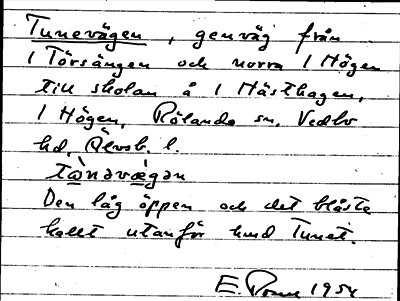 Tunevägen, genväg från
1 Törsängen och norra 1 Högen
till skolan å 1 Hästhagen,
1 Högen, Rölanda sn, Vedbo
hd, Älvsb. l.
tɷ̀nəvæ̀gən
Den låg öppen och det blåste
kallt utanför hund Tunet.
E. 1954